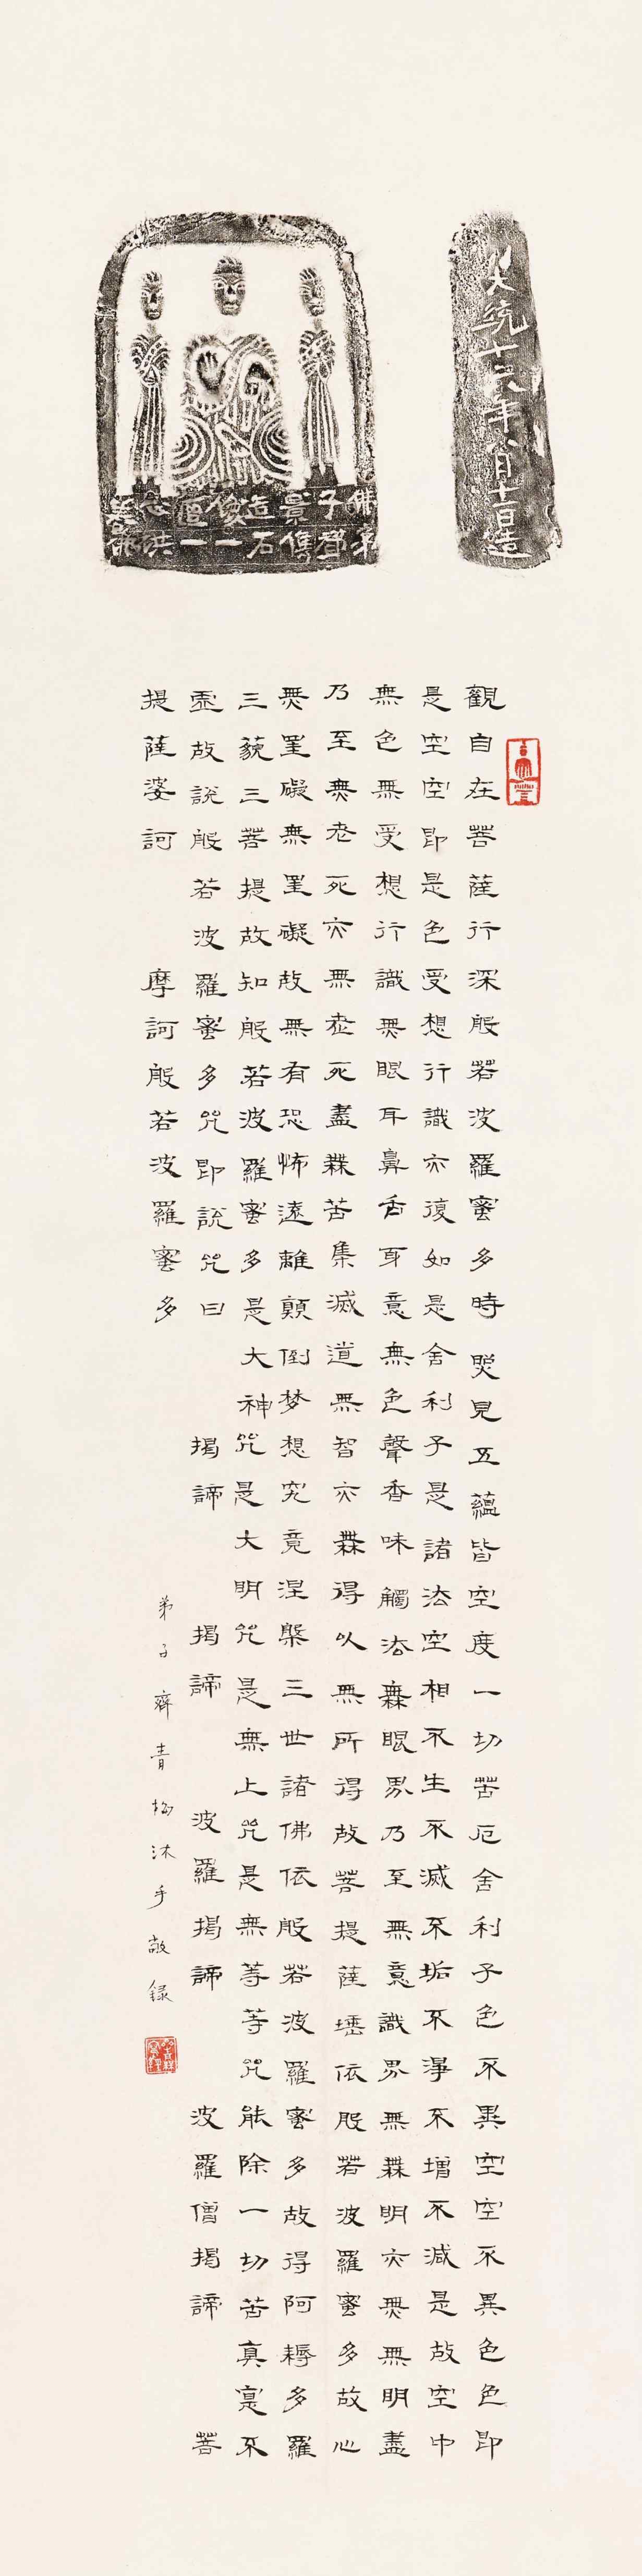 大統十六年八月十一日造
佛弟
子鄧
景儁
造石
像一
區一
心洪
養佛
觀自在菩薩行深般若波羅蜜多時照見五蘊皆空度一切苦厄舍利子色不異空空不異色色即
是空空即是色受想行識亦復如是舍利子是諸法空相不生不滅不垢不淨不增不減是故空中
無色無受想行識無眼耳鼻舌身意無色聲香味觸法無眼界乃至無意識界無無明亦無無明盡
乃至無老死亦無老死盡無苦集滅道無智亦無得以無所得故菩提薩埵依般若波羅蜜多故心
無罣礙無罣礙故無有恐怖遠離顛倒梦想究竟涅槃三世諸佛依般若波羅蜜多故得阿耨多羅
三藐三菩提故知般若波羅蜜多是大神咒是大明咒是無上咒是無等等咒能除一切苦真寔不
虛故說般若波羅蜜多咒即說咒曰 揭諦 揭諦 波羅揭諦 波羅僧揭諦 菩
提薩婆訶 摩訶般若波羅蜜多
弟子齊青松沐手敬録